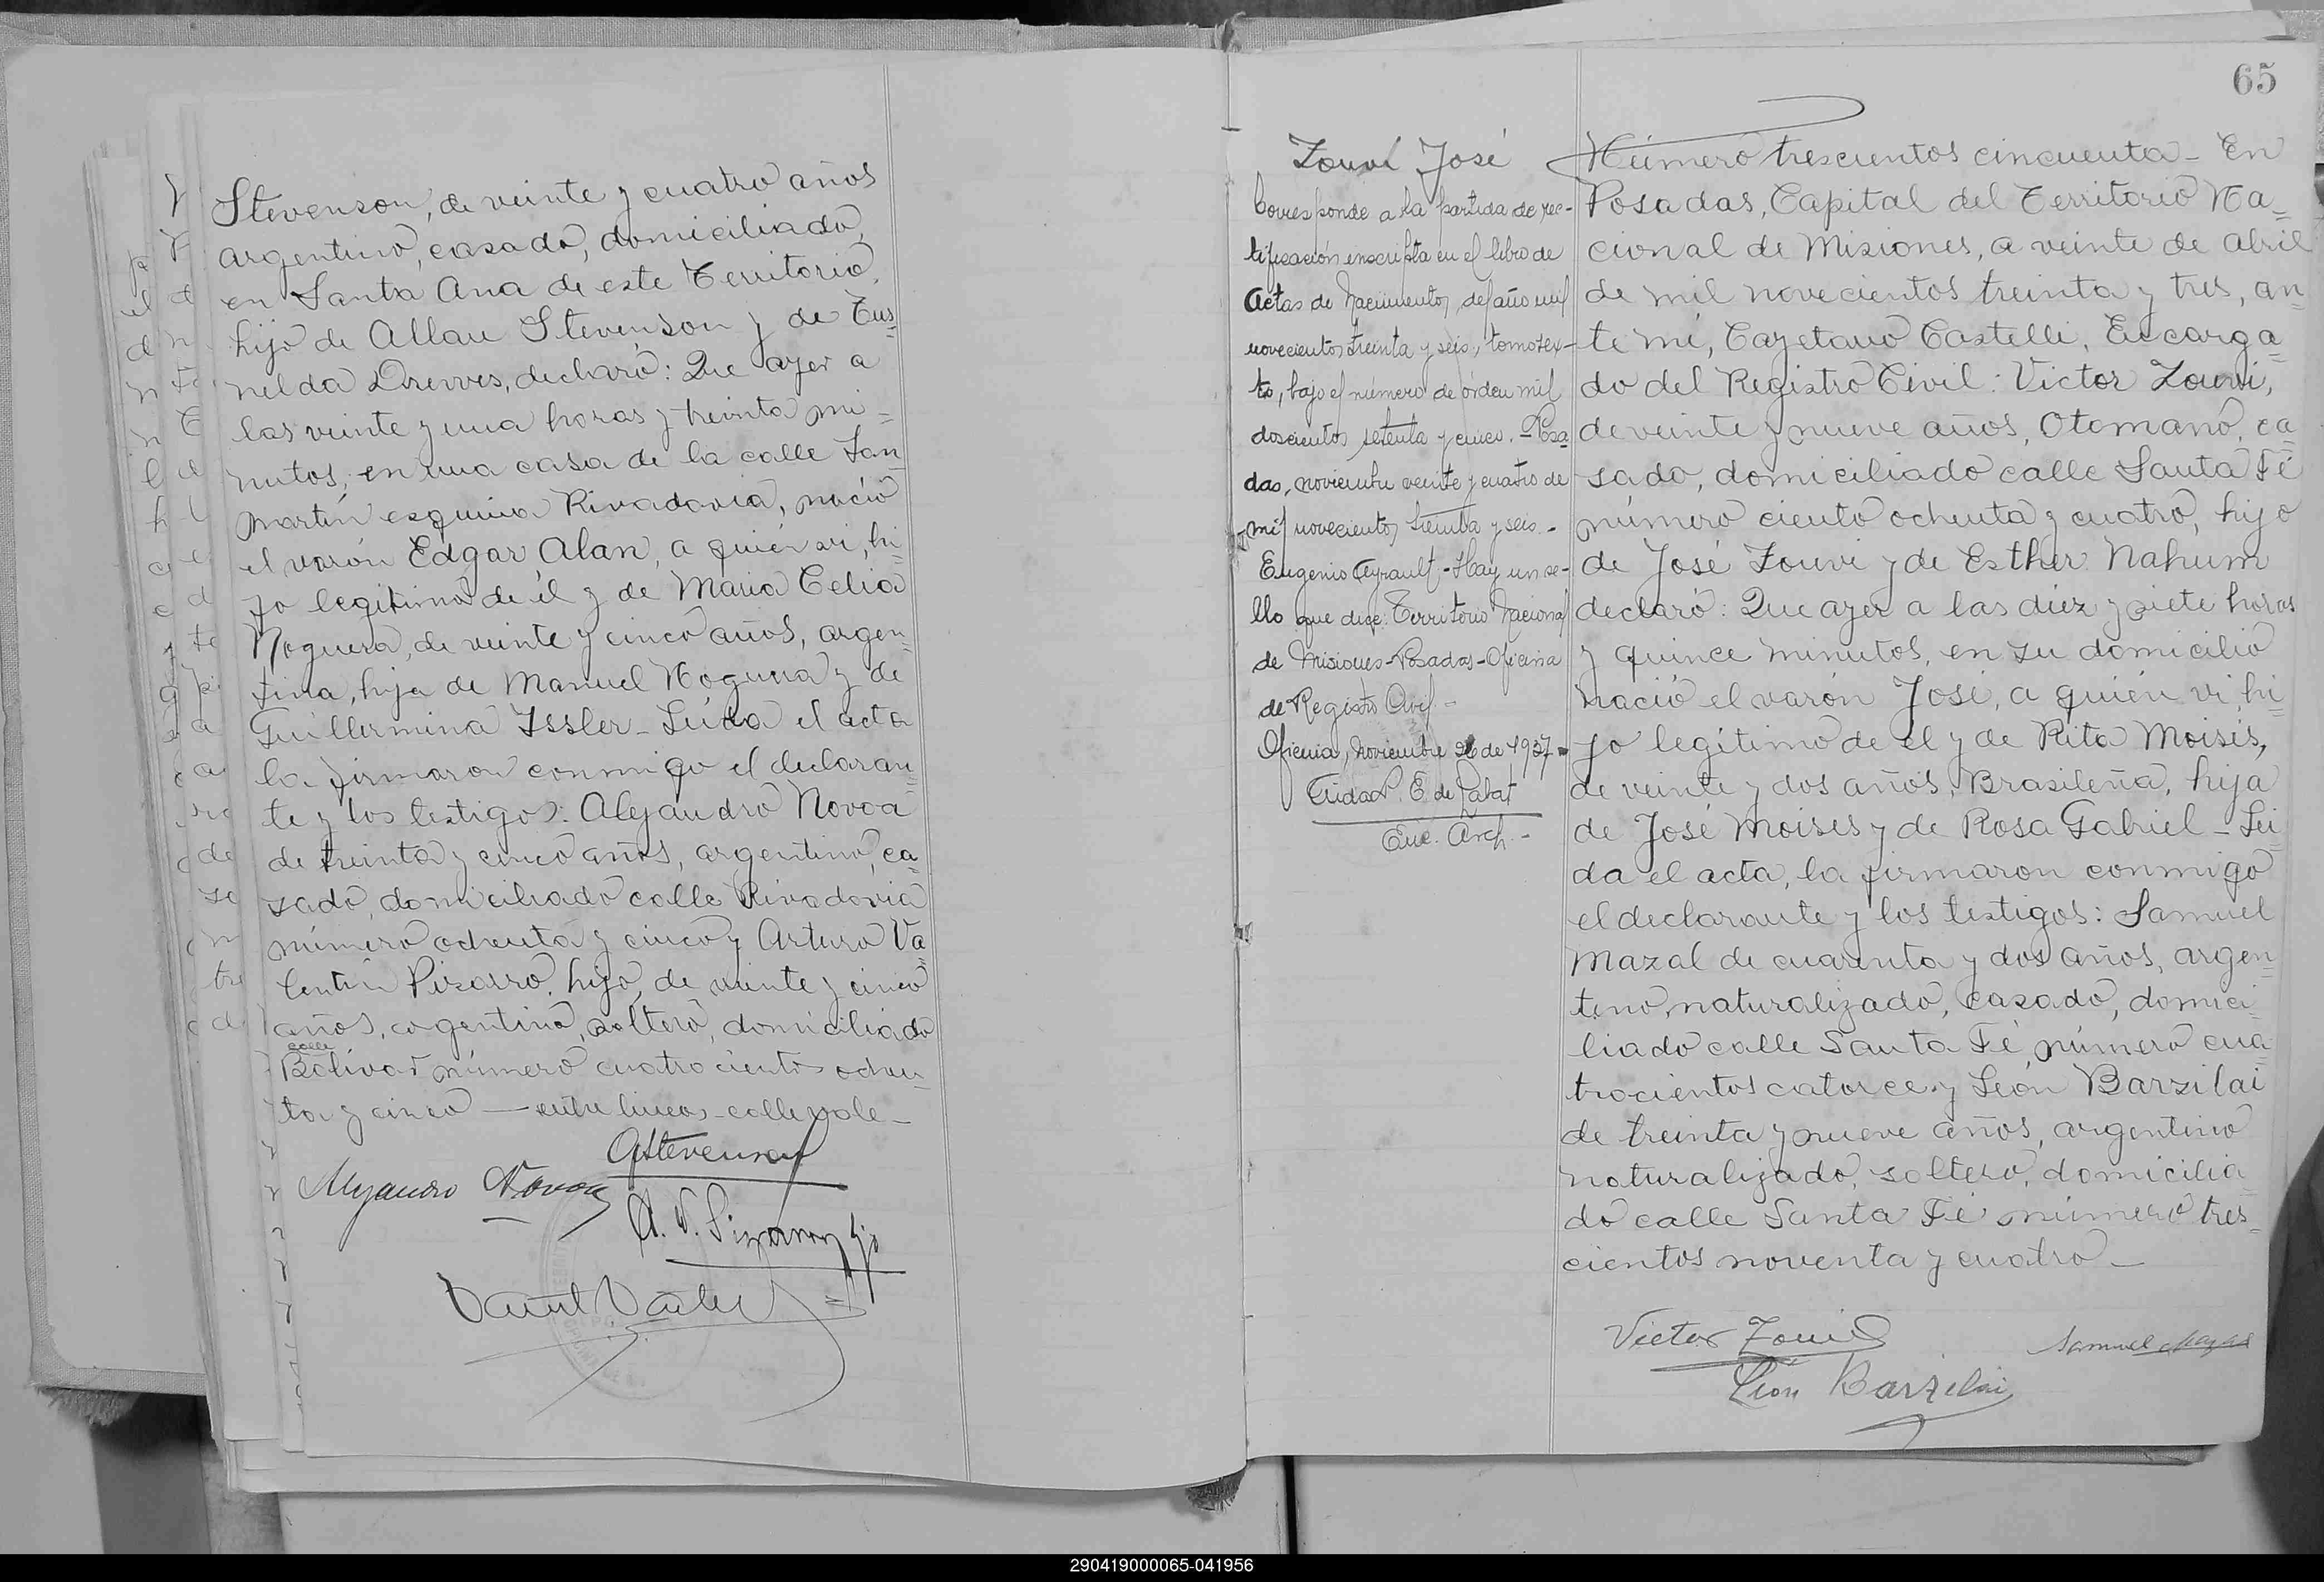 Stevenson, de veinte y cuatro años
argentino, casado, domiciliado
en Santa Ana de este Territorio,
hijo de Allan Stevenson y de Tus=
nelda Drewes, declaró: Que ayer a
las veinte y una horas y treinta mi=
nutos, en una casa de la calle San
Martín esquina Rivadavia, nació
el varón Edgar Alan, a quién vi, hi=
jo legítimo de él y de Maria Celia
Noguera, de veinte y cinco años, argen=
tina, hija de Manuel Noguera y de
Guillermina Issler - Leída el acta
la firmaron conmigo el declaran=
te y los testigos: Alejandro Novoa
de treinta y cinco años, argentino, ca=
sado, domiciliado calle Rivadavia
número ochenta y cinco y Arturo Va=
lentín Pizarro, hijo, de veinte y cinco
años, argentino, soltero, domiciliado
calle
Bolívar número cuatrocientos ochen=
ta y cinco — entre lineas - calle vale -
AStevenson
Alejandro Novoa
65
Zouvi José
Corresponde a la partida de rec-
tificación inscripta en el libro de
Actas de Nacimientos, del año mil
novecientos treinta y seis, tomo sex-
to, bajo el número de órden mil
doscientos setenta y cinco. - Posa=
das, noviembre veinte y cuatro de
mil novecientos treinta y seis. -
Eugenio Ayrault - Hay un se-
llo que dice: Territorio Nacional
de Misiones - Posadas - Oficina
de Registro Civil -
Oficina, Noviembre 26 de 1937 -
Enc. Arch. -
Número trescientos cincuenta - En
Posadas, Capital del Territorio Na=
cional de Misiones, a veinte de abril
de mil novecientos treinta y tres, an
te mí, Cayetano Castelli, Encarga=
do del Registro Civil: Victor Zouvi,
de veinte y nueve años, Otomano, ca=
sado, domiciliado calle Santa Fé
número ciento ochenta y cuatro, hijo
de José Zouvi y de Esther Nahum
declaró: Que ayer a las diez y siete horas
y quince minutos, en su domicilio
nació el varón José, a quién vi, hi=
jo legítimo de él y de Rita Moisés,
de veinte y dos años, Brasileña, hija
de José Moises y de Rosa Gabriel - Leí
da el acta, la firmaron conmigo
el declarante y los testigos: Samuel
Mazal de cuarenta y dos años, argen=
tino naturalizado, casado, domici=
liado calle Santa Fé, número cua
trocientos catorce y León Barzilai
de treinta y nueve años, argentino
naturalizado, soltero, domicilia=
do calle Santa Fé número tres=
cientos noventa y cuatro -
Victor Zouvi
Samuel Mazal
León Barzilai
290419000065-041956